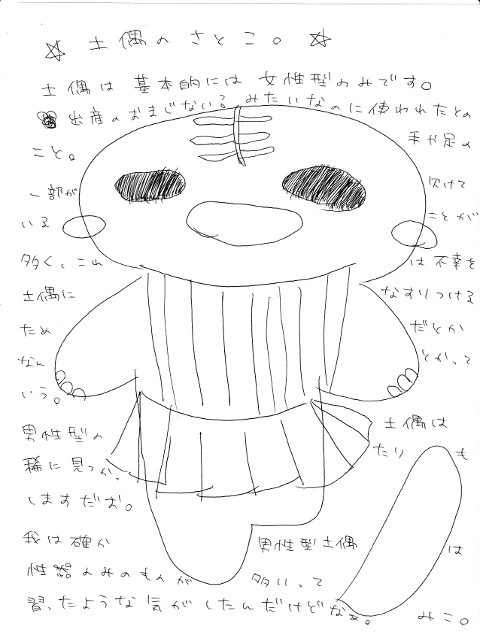 ☆ 土偶のさとこ。 ☆
土偶は 基本的には 女性型のみです。
出産のおまじない?みたいなのに使われたとの
こと。 手や足の
一部が 欠けて
いる ことが
多く、これ は不幸を
土偶に なすりつける
ため だとか
なん とかって
いう。
男性型の 土偶は
稀に見つかっ たりも
しますだお。
我は確か 男性型土偶 は
性器のみのもんが 多いって
習ったような気がしたんだけどなぁ。 みこ。